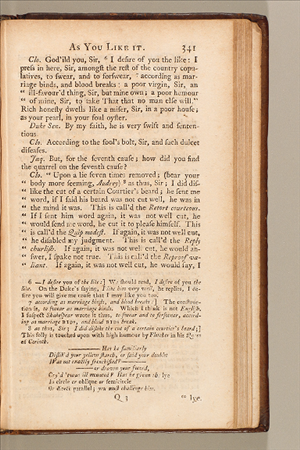 As You Like it. 341
Clo. God'ild you, Sir, ⁶ I desire of you the like: I
press in here, Sir, amongst the rest of the country copu-
latives, to swear, and to forswear, ⁷ according as mar-
riage binds, and blood breaks: a poor virgin, Sir, an
“ ill-favour'd thing, Sir, but mine own; a poor humour
“ of mine, Sir, to take That that no man else will.”
Rich honesty dwells like a miser, Sir, in a poor house;
as your pearl, in your foul oyster.
Duke Sen. By my faith, he is very swift and senten-
tious.
Clo. According to the fool's bolt, Sir, and such dulcet
diseases.
Jaq. But, for the seventh cause; how did you find
the quarrel on the seventh cause?
Clo. “ Upon a lie seven times removed; (bear your
“ body more seeming, Audrey) ⁸ as thus, Sir; I did dis-
“ like the cut of a certain Courtier's beard; he sent me
“ word, if I said his beard was not cut well, he was in
“ the mind it was. This is call'd the Retort courteous.
“ If I sent him word again, it was not well cut, he
“ would send me word, he cut it to please himself. This
“ is call'd the Quip modest. If again, it was not well cut,
“ he disabled my judgment. This is call'd the Reply
“ churlish. If again, it was not well cut, he would an-
“ swer, I spake not true. This is call'd the Reproof va-
“ liant. If again, it was not well cut, he would say, I
6 —I desire you of the like;] We should read, I desire of you the
like. On the Duke's saying, I like him very well, he replies, I de-
sire you will give me cause that I may like you too.
7 according as marriage binds, and blood breaks:] The construc-
tion is, to swear as marriage binds. Which I think is not English.
I suspect Shakespear wrote it thus, to swear and to forswear, accord-
ing as marriage BIDS, and blood BIDS break.
8 as thus, Sir; I did dislike the cut of a certain courtier's beard;]
This folly is touched upon with high humour by Fletcher in his Queen
of Corinth.
Has he familiarly
Dislik'd your yellow starch, or said your doublet
Was not exactly frenchified?
or drawn your sword,
Cry'd 'twas ill mounted? Has he given the lye
In circle or oblique or semicircle
Or direct parallel; you must challenge him.
Q 3 “ lye.